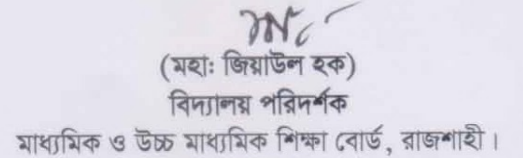 (মহাঃ জিয়াউল হক)
বিদ্যালয় পরিদর্শক
মাধ্যমিক ও উচ্চ মাধ্যমিক শিক্ষা বোর্ড, রাজশাহী।